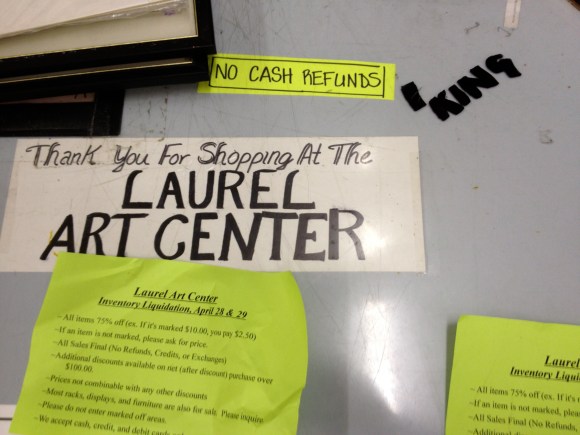 NO CASH REFUNDS
I KING
Thank You For Shopping At The
LAUREL
ART CENTER
Laurel Art Center
Inventory Liquidation, April 28 & 29
~All items 75% off (ex. If it's marked $10.00, you pay $2.50)
~If an item is not marked, please ask for price.
~All Sales Final (No Refunds, Credits, or Exchanges)
~Additional discounts available on net (after discount) purchase over
$100.00.
~Prices not combinable with any other discounts
~Most racks, displays, and furniture are also for sale. Please inquire
~Please do not enter marked off areas.
~We accept cash, credit, and debit cards
Laurel
Inventory Liqui
~All items 75% off (ex. If it
~If an item is not marked, plea
~All Sales Final (No Refund
~Additional